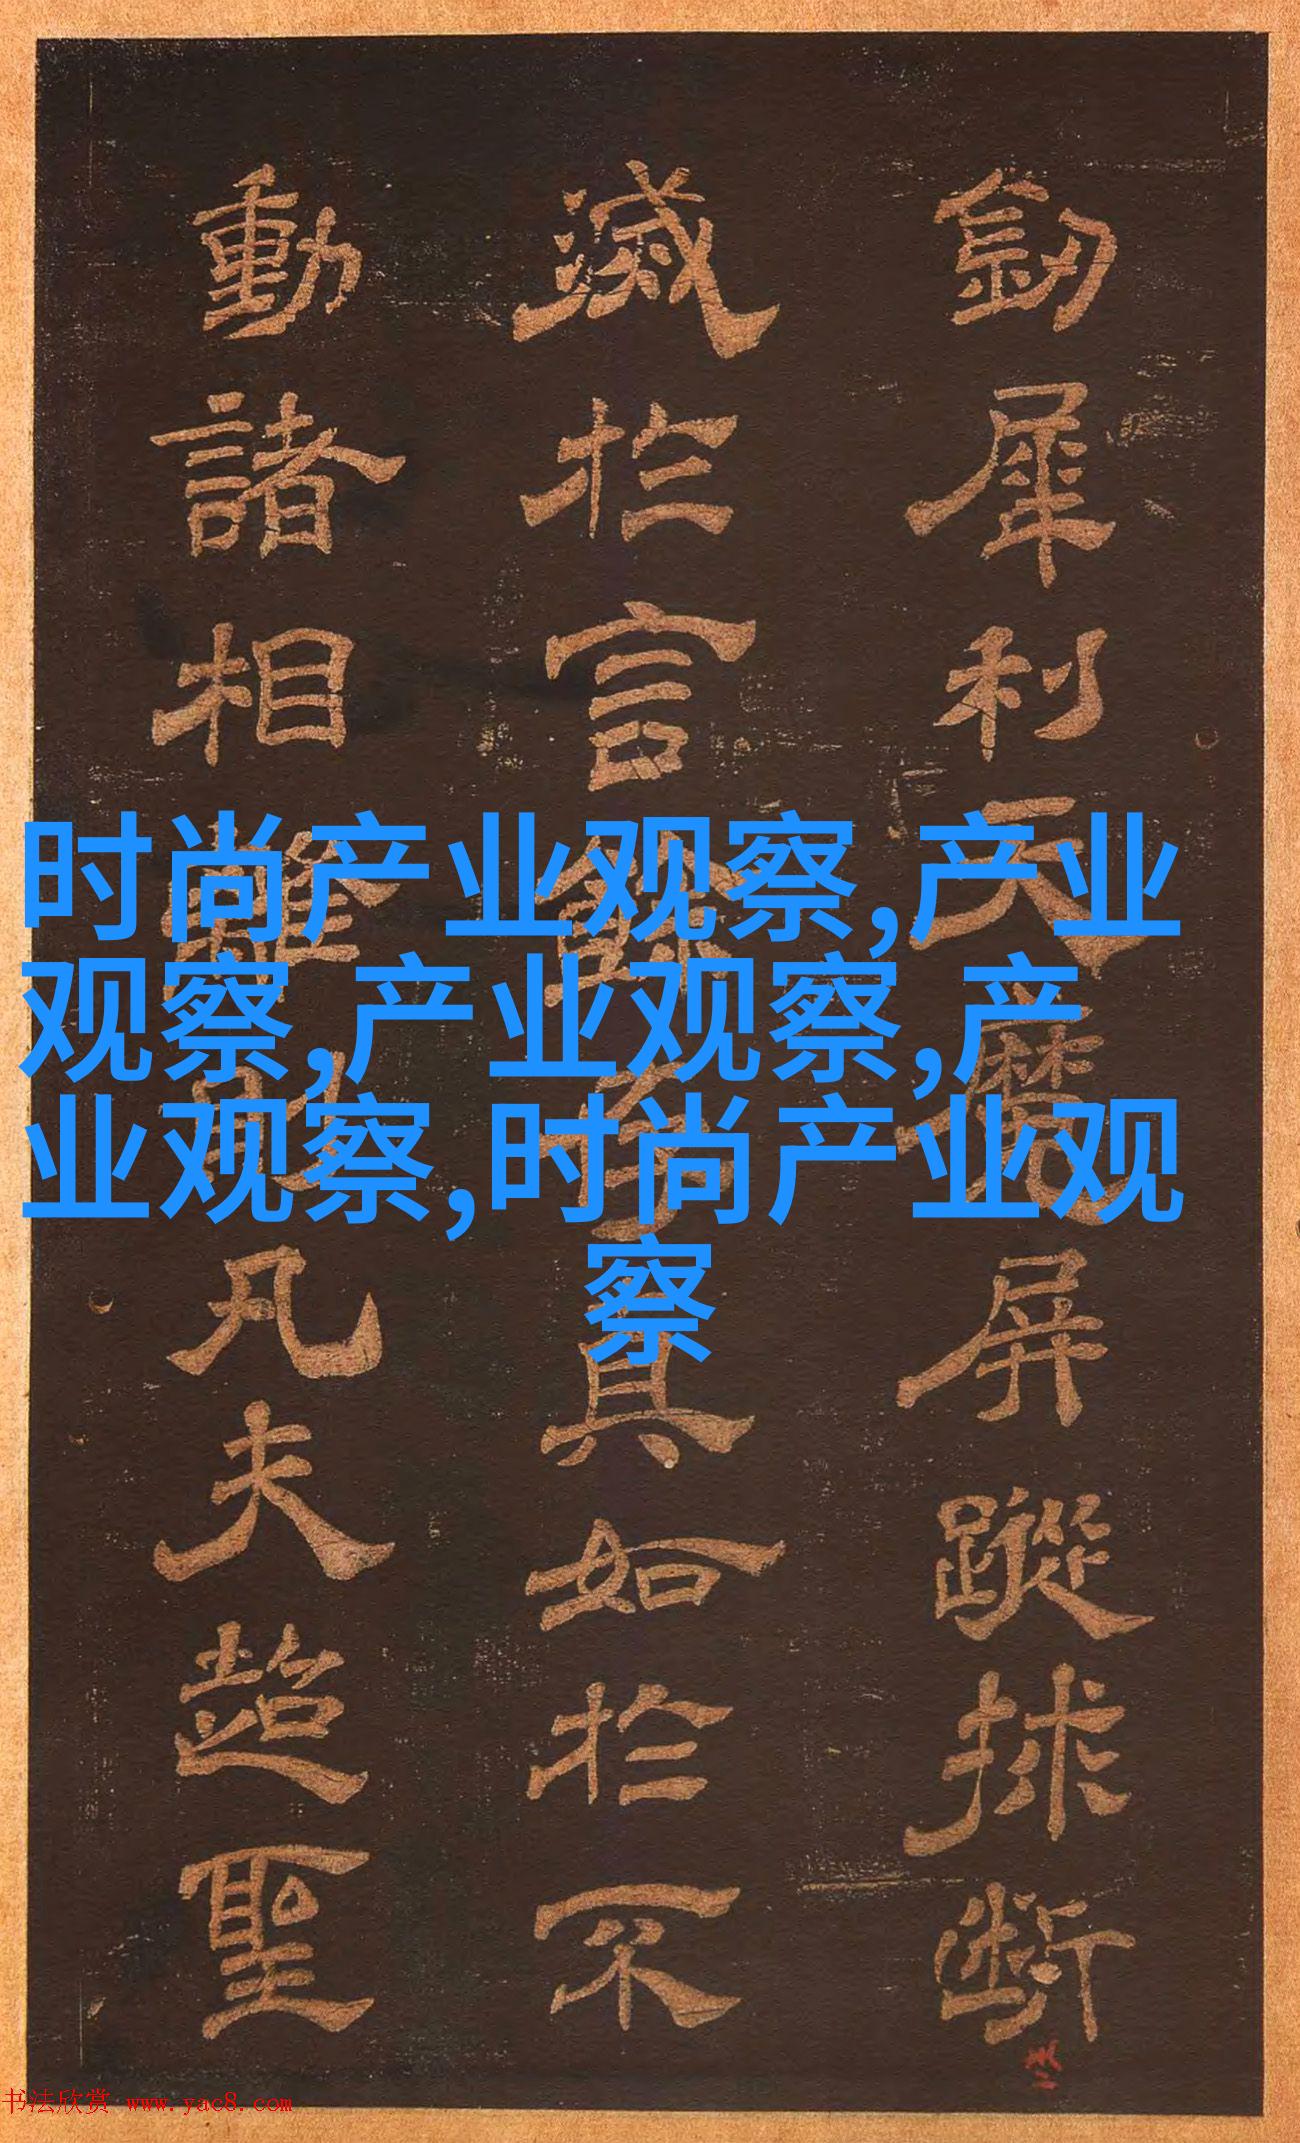 劒犀利天魔屏蹤挨斷
滅於言餘存真如於不
動諸相離凡夫超聖
时尚产业观察,产业
观察,产业观察,产
业观察,时尚产业观
察
书法欣赏 www.yac8.com